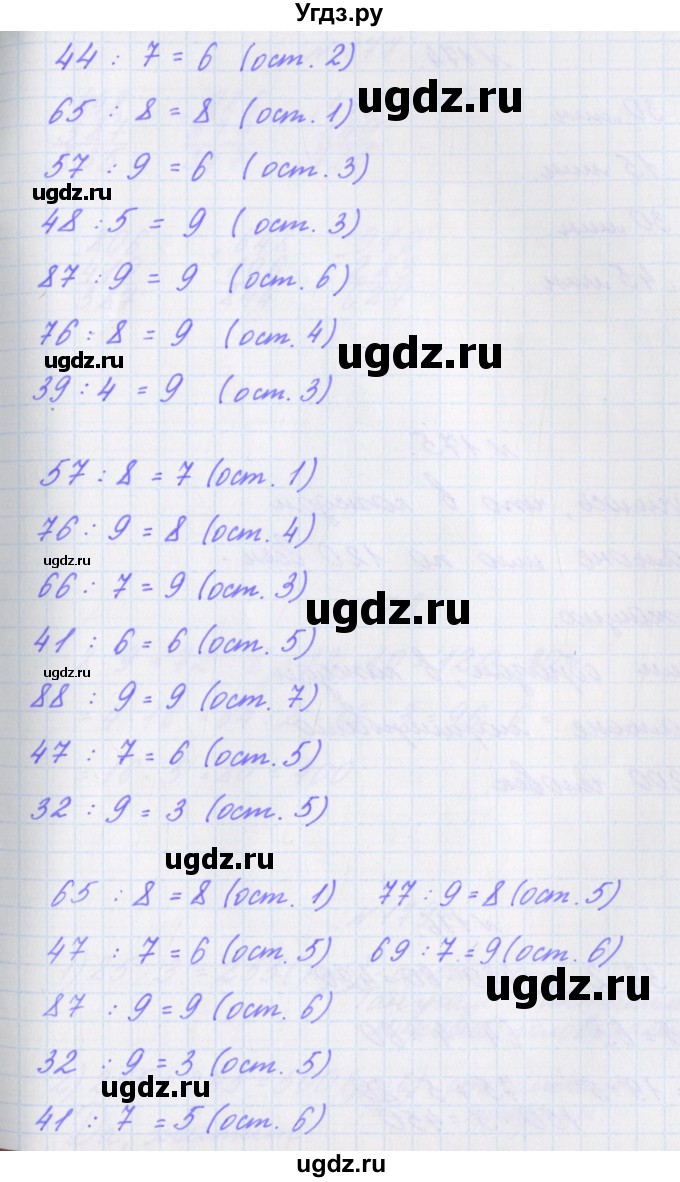 Угдз.ру
44 : 7 = 6 (ост. 2)
ugdz.ru
65 : 8 = 8 (ост. 1)
57 : 9 = 6 (ост. 3)
ugdz.ru
48 : 5 = 9 (ост. 3)
87 : 9 = 9 (ост. 6)
76 : 8 = 9 (ост. 4)
ugdz.ru
ugdz.ru
39 : 4 = 9 (ост. 3)
57 : 8 = 7 (ост. 1)
76 : 9 = 8 (ост. 4)
ugdz.ru
66 : 7 = 9 (ост. 3)
ugdz.ru
41 : 6 = 6 (ост. 5)
ugdz.ru
88 : 9 = 9 (ост. 7)
47 : 7 = 6 (ост. 5)
32 : 9 = 3 (ост. 5)
ugdz.ru
65 : 8 = 8 (ост. 1) 77 : 9 = 8 (ост. 5)
47 : 7 = 6 (ост. 5) 69 : 7 = 9 (ост. 6)
ugdz.ru
87 : 9 = 9 (ост. 6)
32 : 9 = 3 (ост. 5)
ugdz.ru
41 : 7 = 5 (ост. 6)
ugdz.ru